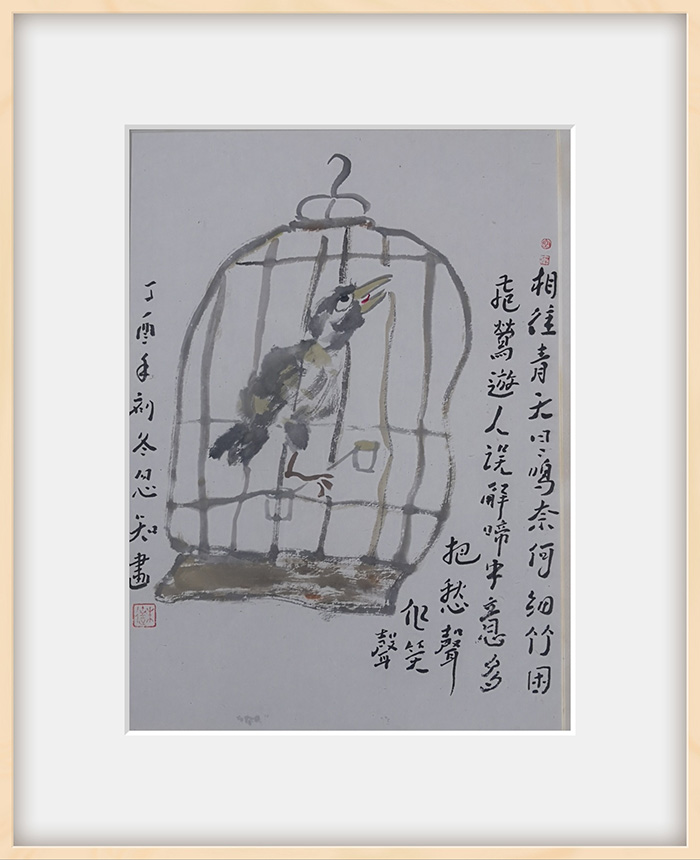 相往青天日日鳴奈何細竹困
飛鶯遊人誤解啼中意多
把愁聲
作笑
聲
丁酉年初冬思知畫